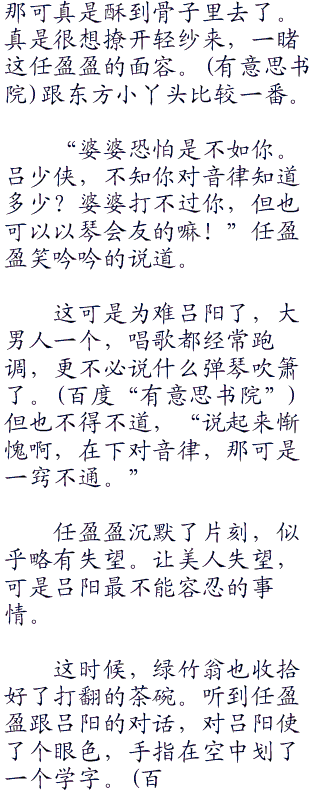 那可真是酥到骨子里去了。
真是很想撩开轻纱来，一睹
这任盈盈的面容。(有意思书
院)跟东方小丫头比较一番。
“婆婆恐怕是不如你。
吕少侠，不知你对音律知道
多少？婆婆打不过你，但也
可以以琴会友的嘛！”任盈
盈笑吟吟的说道。
这可是为难吕阳了，大
男人一个，唱歌都经常跑
调，更不必说什么弹琴吹箫
了。(百度“有意思书院”)
但也不得不道，“说起来惭
愧啊，在下对音律，那可是
一窍不通。”
任盈盈沉默了片刻，似
乎略有失望。让美人失望，
可是吕阳最不能容忍的事
情。
这时候，绿竹翁也收拾
好了打翻的茶碗。听到任盈
盈跟吕阳的对话，对吕阳使
了个眼色，手指在空中划了
一个学字。(百